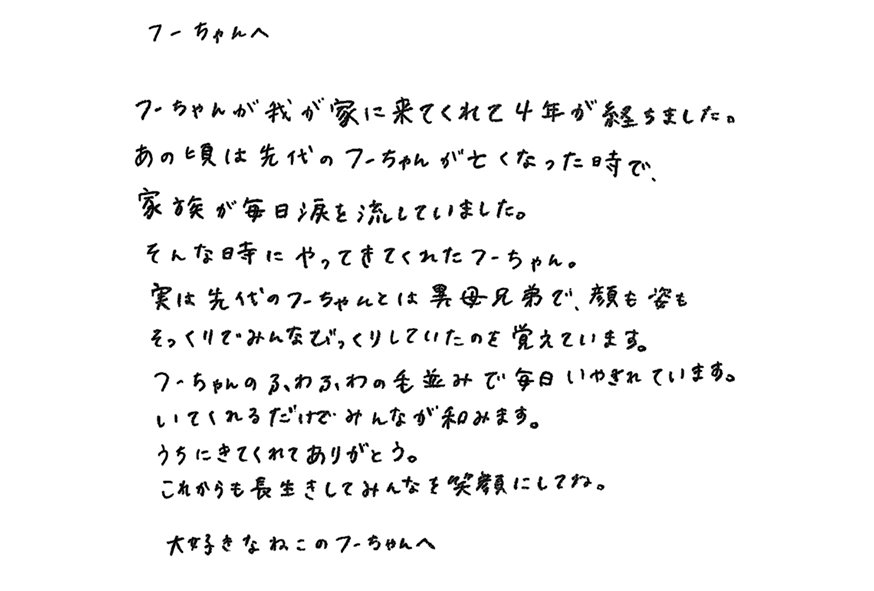 フーちゃんへ
フーちゃんが我が家に来てくれて4年が経ちました。
あの頃は先代のフーちゃんが亡くなった時で、
家族が毎日涙を流していました。
そんな時にやってきてくれたフーちゃん。
実は先代のフーちゃんとは異母兄弟で、顔も姿も
そっくりでみんなびっくりしていたのを覚えています。
フーちゃんのふわふわの毛並みで毎日いやされています。
いてくれるだけでみんなが和みます。
うちにきてくれてありがとう。
これからも長生きしてみんなを笑顔にしてね。
大好きなねこのフーちゃんへ